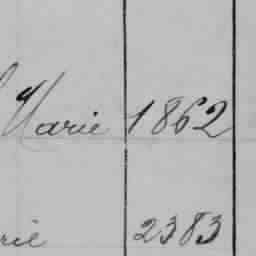 Marie 1862
rie 2383